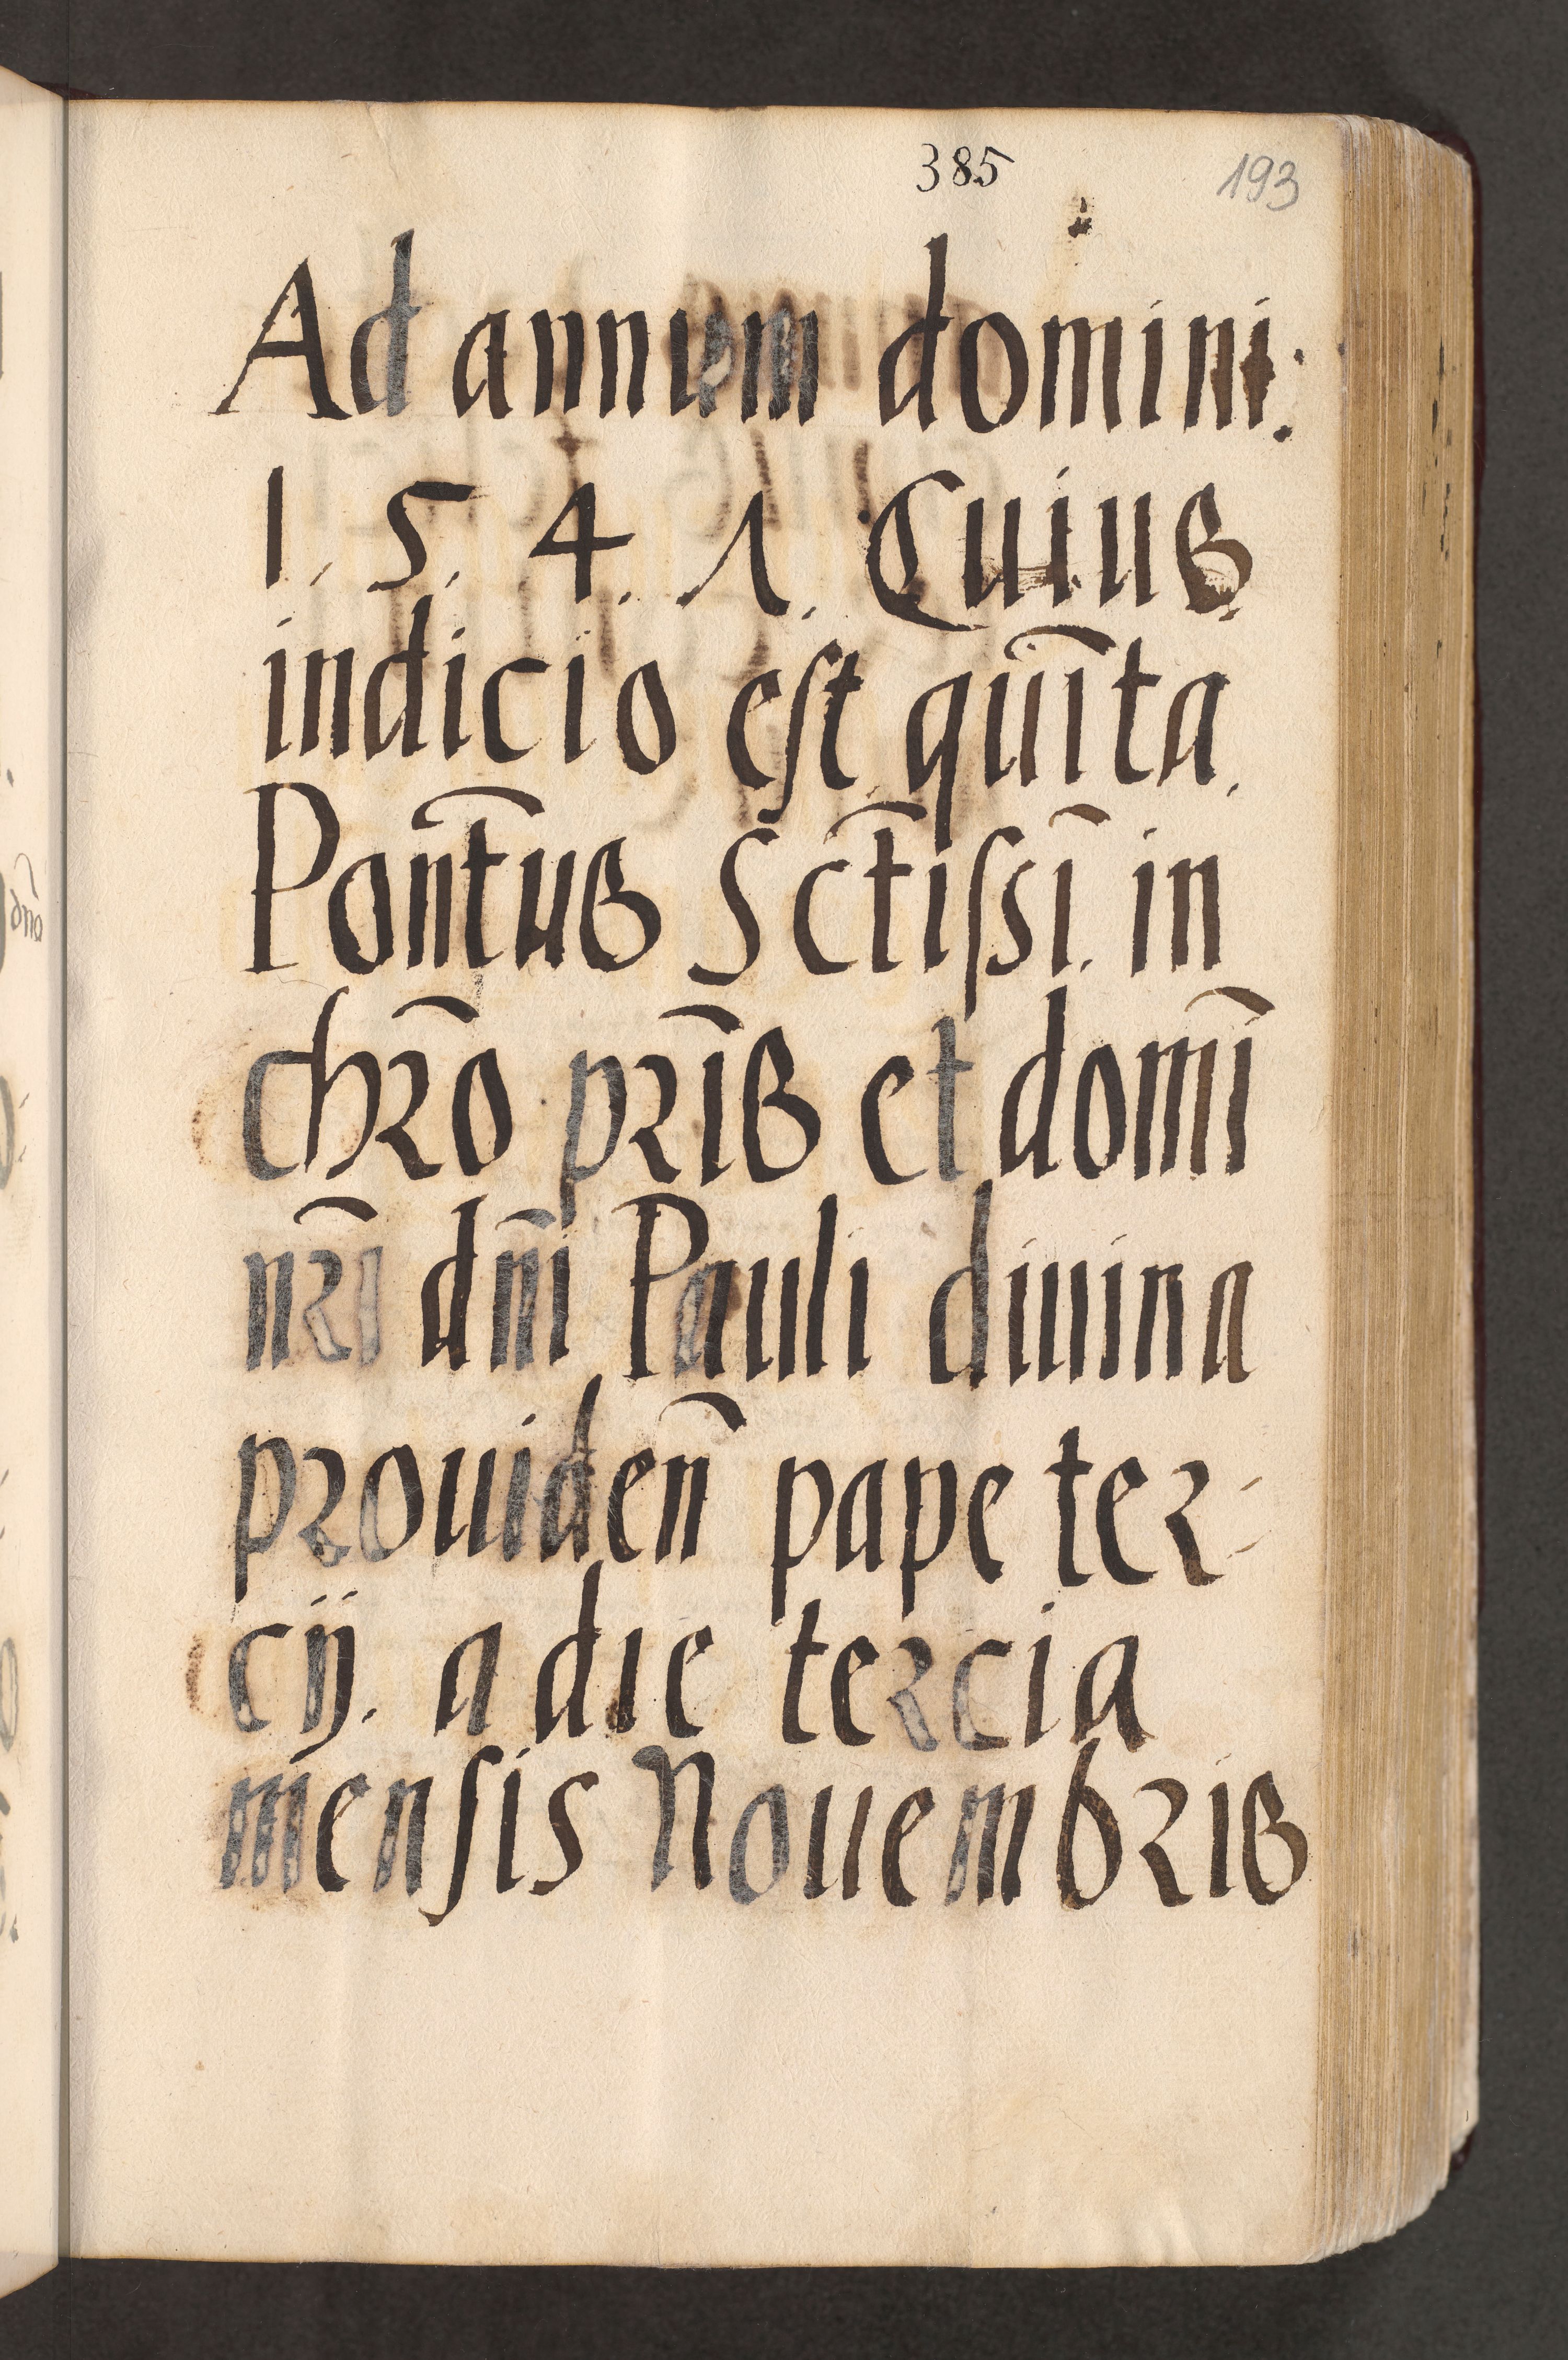 385 193
Ad annum domini:
1. 5. 4. 1. Cuius
indicio est quīta.
Pon̄tus Sc̄tissī. in
chr̄o pr̄is et domī
nr̄i dn̄i Pauli diuina
prouiden̄ pape ter-
cij. a die tercia
mensis Nouembris